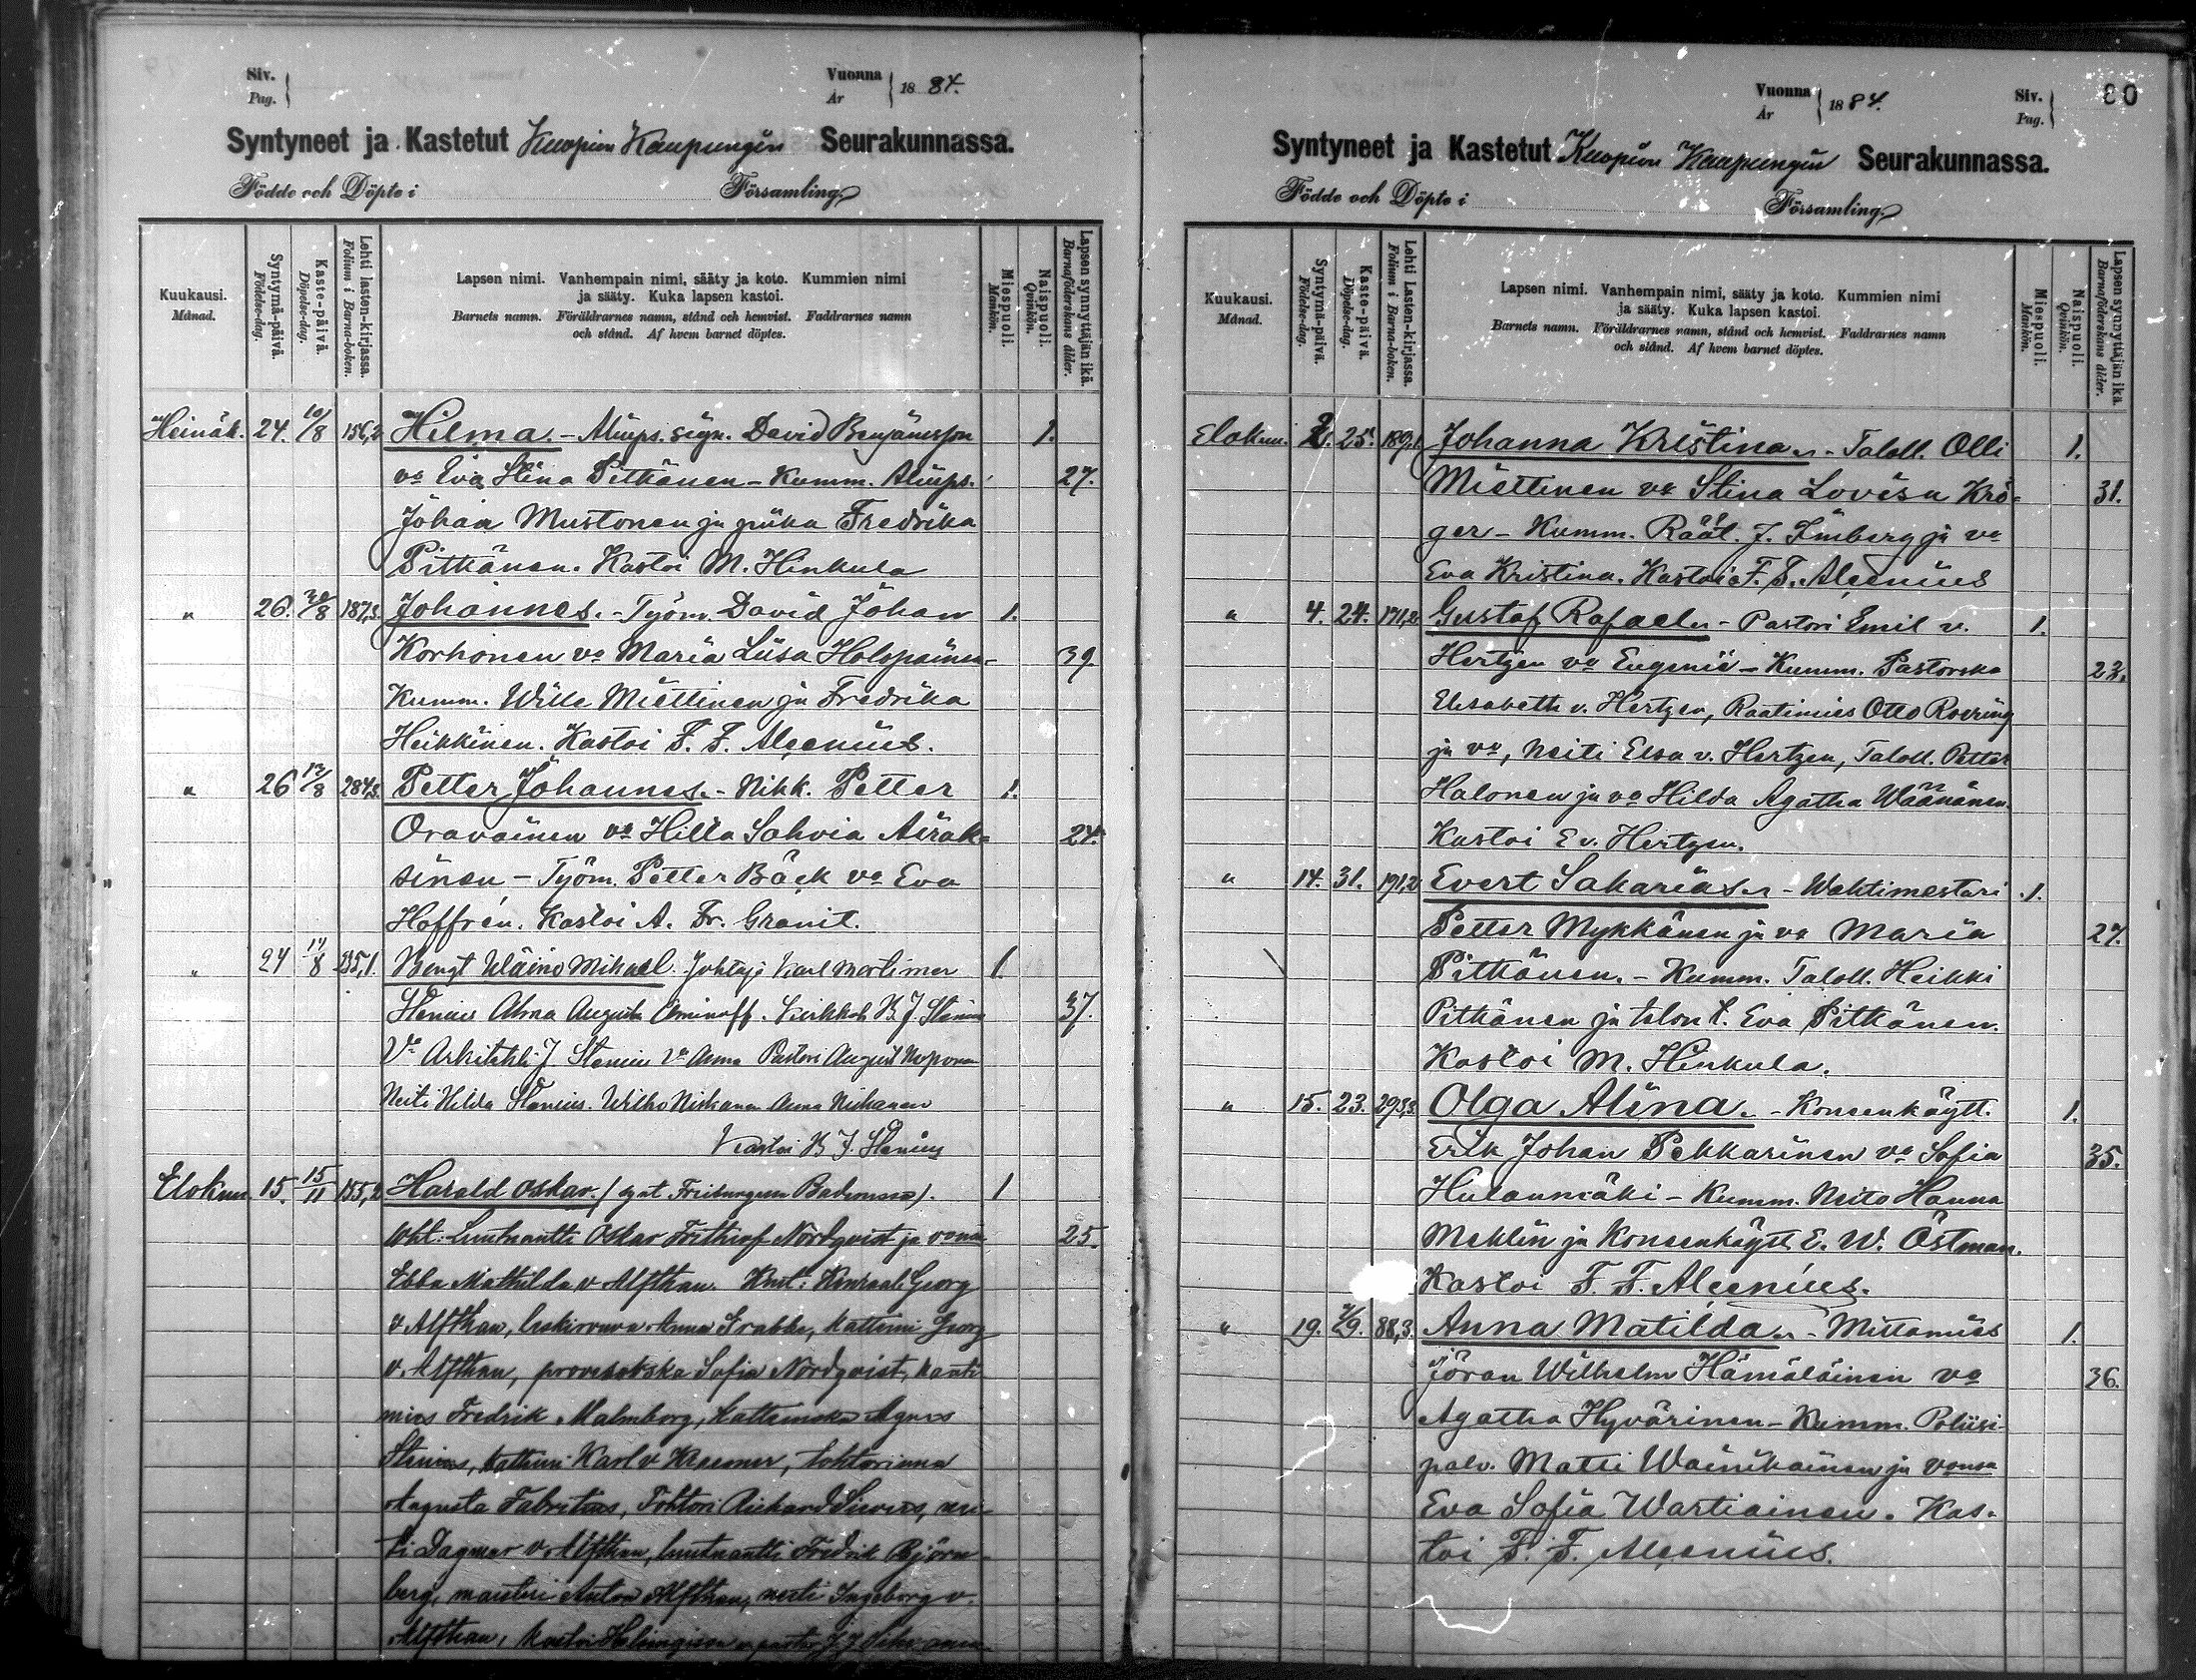 Siv.
Pag.
Vuonna
År
1884.
Syntyneet ja Kastetut Kuopion Kaupungin Seurakunnassa.
Födde och Döpte i Församling.
Kuukausi.
Månad.
Syntymä-päivä.
Födelse-dag.
Kaste-päivä.
Döpelse-dag.
Lehti lasten-kirjassa.
Folium i Barna-boken.
Lapsen nimi. Vanhempain nimi, sääty ja koto. Kummien nimi
ja sääty. Kuka lapsen kastoi.
Barnets namn. Föräldrarnes namn, stånd och hemvist. Faddrarnes namn
och stånd. Af hvem barnet döptes.
Miespuoli.
Mankön.
Naispuoli.
Qvinkön.
Lapsen synnyttäjän ikä.
Barnaföderskans ålder.
Heinäk. 24. 10/8 156,2 Hilma. - Aliups. sign. David Benjaminsson 1.
va Eva Stina Pitkänen - Kumm. Aliups. 27.
Johan Mustonen ja piika Fredrika
Pitkänen. Kastoi M. Hinkula
" 26. 30/8 187,3. Johannes. - Työm. David Johan 1.
Korhonen va Maria Liisa Holopainen - 39
Kumm. Wille Miettinen ja Fredrika
Heikkinen. Kastoi F. F. Alcenius.
" 26 12/8 284,3. Petter Johannes. - Nikk. Petter 1.
Oravainen va Hilta Sahvia Airak= 24.
sinen - Työm. Petter Bäck va Eva
Hoffrén. Kastoi A. Fr. Granit.
" 24 17/8 235,1. Bengt Wäinö Mikael. Johtaja Karl Mortimer 1.
Stenius Alma Augusta Aminoff. Kirkkoh B. J. Stenius 37.
Va Arkitehti J. Stenius Va Anna Pastori August Noponen
Neiti Hilda Stenius. Wilho Niskanen Anna Niskanen
Kastoi B J. Stenius
Elokuu. 15. 15/11 155,2 Harald Oskar. (synt. Freiburgissa Badenissa). 1
Wht: Luutnantti Oskar Frithiof Nordqvist ja vmo 25.
Ebba Mathilda v Alfthan. Kmt: Kenraali Georg
v Alfthan, leskirouva Anna Grabbe, Katteini Georg
v. Alfthan, provisorska Sofia Nordqvist, kauppa
mies Fredrik Malmborg, Agnes
Stenius, Katteini Karl v Kraemer, tohtorinna
Augusta Fabritius, Tohtori Richard Sievers, nei-
ti Dagmar v. Alfthan, luutnantti Fredrik Björn-
berg, maisteri Anton Alfthan, neiti Ingeborg v.
Alfthan, kastoi Helsingissä
Vuonna
År
1884.
Siv.
Pag.
80
Syntyneet ja Kastetut Kuopion Kaupungin Seurakunnassa.
Födde och Döpte i Församling.
Kuukausi.
Månad.
Syntymä-päivä.
Födelse-dag.
Kaste-päivä.
Döpelse-dag.
Lehti Lasten-kirjassa.
Folium i Barna-boken.
Lapsen nimi. Vanhempain nimi, sääty ja koto. Kummien nimi
ja sääty. Kuka lapsen kastoi.
Barnets namn. Föräldrarnes namn, stånd och hemvist. Faddrarnes namn
och stånd. Af hvem barnet döptes.
Miespuoli.
Mankön.
Naispuoli.
Qvinkön.
Lapsen synnyttäjän ikä.
Barnaföderskans ålder.
Elokuu. 2. 25. 189,1. Johanna Kristina. - Taloll. Olli 1.
Miettinen va Stina Lovisa Krö= 31.
ger - Kumm. Räät. J. Limberg ja va
Eva Kristina. Kastoi F. F. Alcenius
" 4. 24. 171,2 Gustaf Rafael. - Pastori Emil v. 1.
Hertzen va Eugenie - Kumm. Pastorska 23.
Elisabeth v. Hertzen, Raatimies Otto Roering
ja va, Neiti Elsa v. Hertzen, Taloll. Petter
Halonen ja va Hilda Agatha Wäänänen.
Kastoi E v. Hertzen.
" 14. 31. 191,2 Evert Sakarias. - Wahtimestari 1.
Petter Mykkänen ja va Maria 27.
Pitkänen. - Kumm. Taloll. Heikki
Pitkänen ja talon t. Eva Pitkänen.
Kastoi M. Hinkula.
" 15. 23. 293,3. Olga Alina. - Konenkäytt. 1.
Erik Johan Pekkarinen va Sofia 35.
Hulaunmäki - Kumm. Neito Hanna
Mehlin ja Konenkäytt. E. W. Östman.
Kastoi F. F. Alcenius.
" 19. 2/9. 88,3. Anna Matilda. - Mittamies 1.
Jöran Wilhelm Hämäläinen va 36.
Agatha Hyvärinen - Kumm. Poliisi-
palv. Matti Wäinikäinen ja vmosa
Eva Sofia Wartiainen. Kas-
toi F. F. Alcenius.